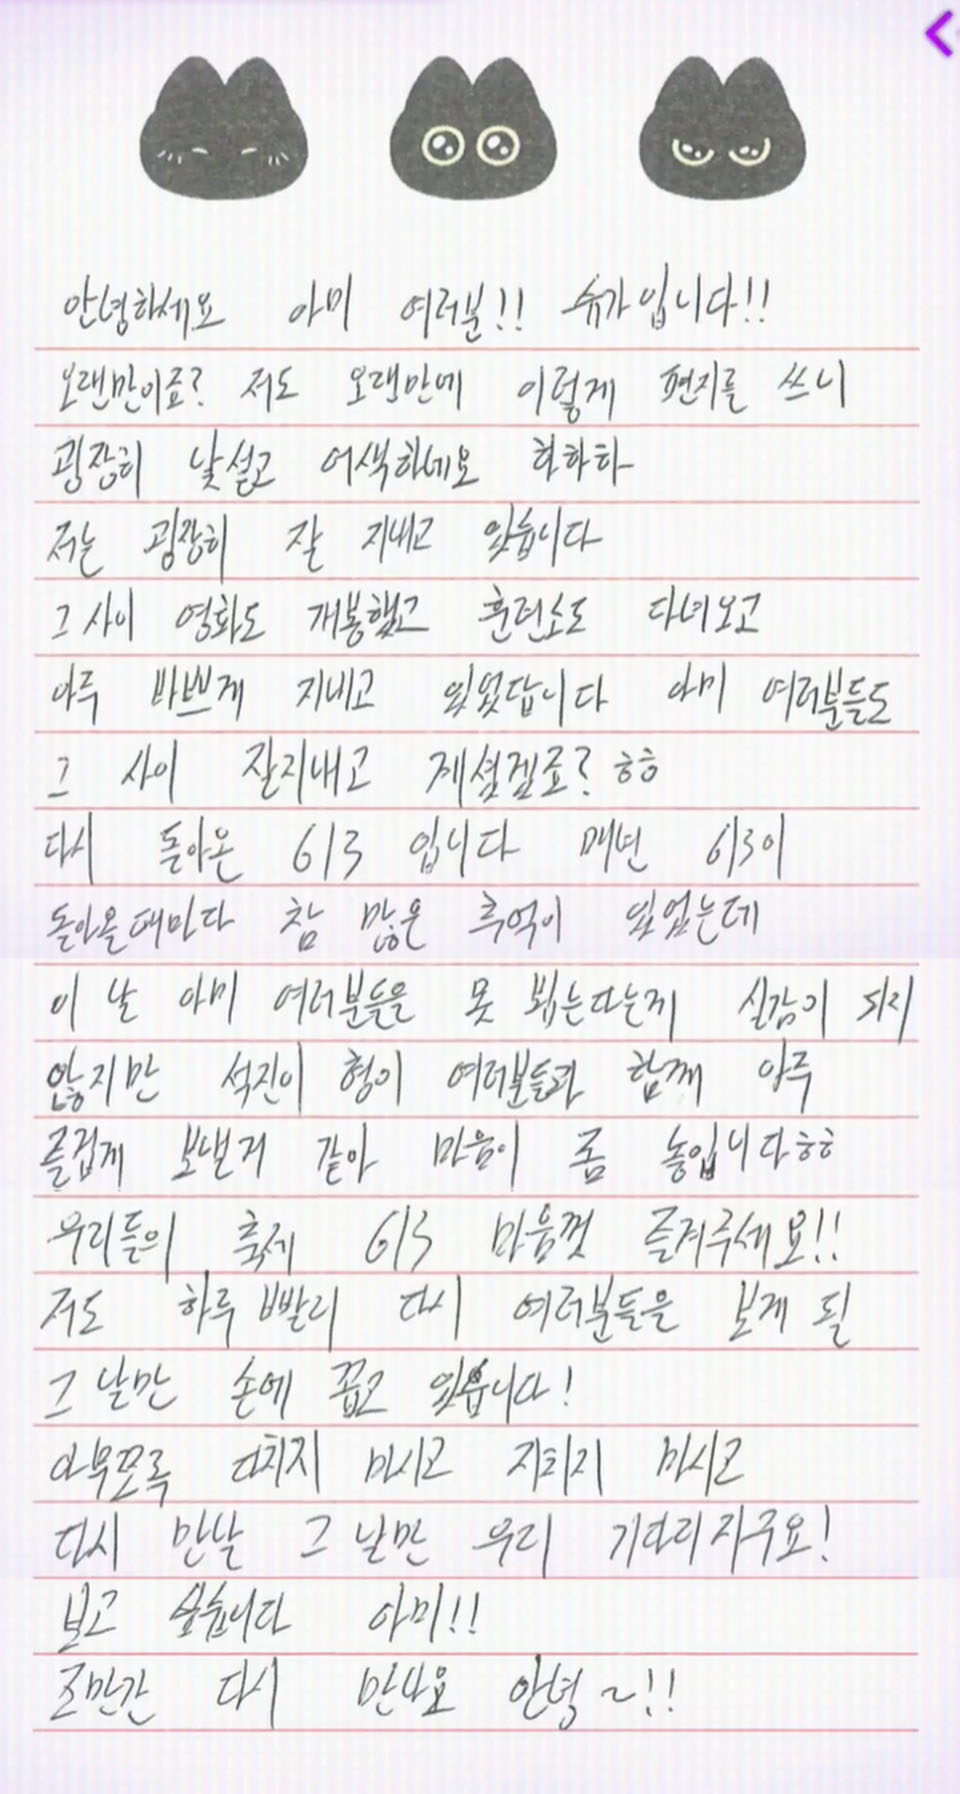 안녕하세요 아미 여러분!! 슈가입니다!!
오랜만이죠? 저도 오랜만에 이렇게 편지를 쓰니
굉장히 낯설고 어색하네요 하하하
저는 굉장히 잘 지내고 있습니다
그 사이 영화도 개봉했고 훈련소도 다녀오고
아주 바쁘게 지내고 있었답니다 아미 여러분들도
그 사이 잘지내고 계셨겠죠? ㅎㅎ
다시 돌아온 613 입니다 매년 613이
돌아올때마다 참 많은 추억이 있었는데
이 날 아미 여러분들을 못 뵙는다는게 실감이 되지
않지만 석진이 형이 여러분들과 함께 아주
즐겁게 보낼거 같아 마음이 좀 놓입니다ㅎㅎ
우리들의 축제 613 마음껏 즐겨주세요!!
저도 하루 빨리 다시 여러분들을 보게 될
그 날만 손에 꼽고 있습니다!
아무쪼록 다치지 마시고 지치지 마시고
다시 만날 그 날만 우리 기다리자구요!
보고 싶습니다 아미!!
조만간 다시 만나요 안녕 ~!!